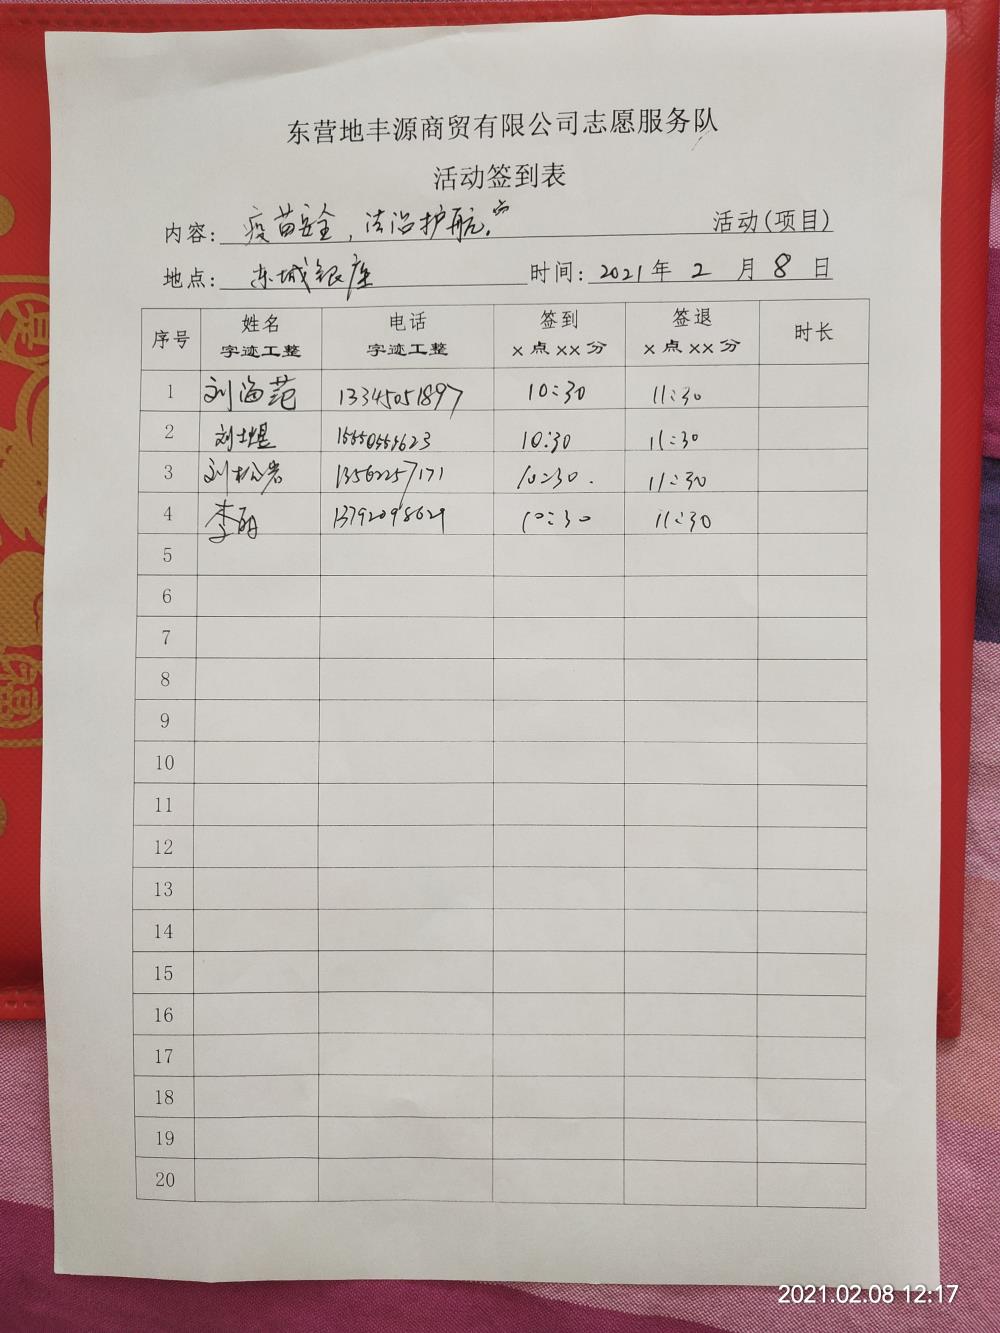 东营地丰源商贸有限公司志愿服务队
活动签到表
内容: 疫苗安全,法治护航. 活动(项目)
地点: 东城银座 时间: 2021 年 2 月 8 日
序号 姓名 字迹工整 电话 字迹工整 签到 x 点 xx 分 签退 x 点 xx 分 时长
1 刘海范 13345051897 10:30 11:30
2 10:30 11:30
3 刘松岩 13562257171 10:30. 11:30
4 李丽 13792098629 10:30 11:30
5
6
7
8
9
10
11
12
13
14
15
16
17
18
19
20
2021.02.08 12:17